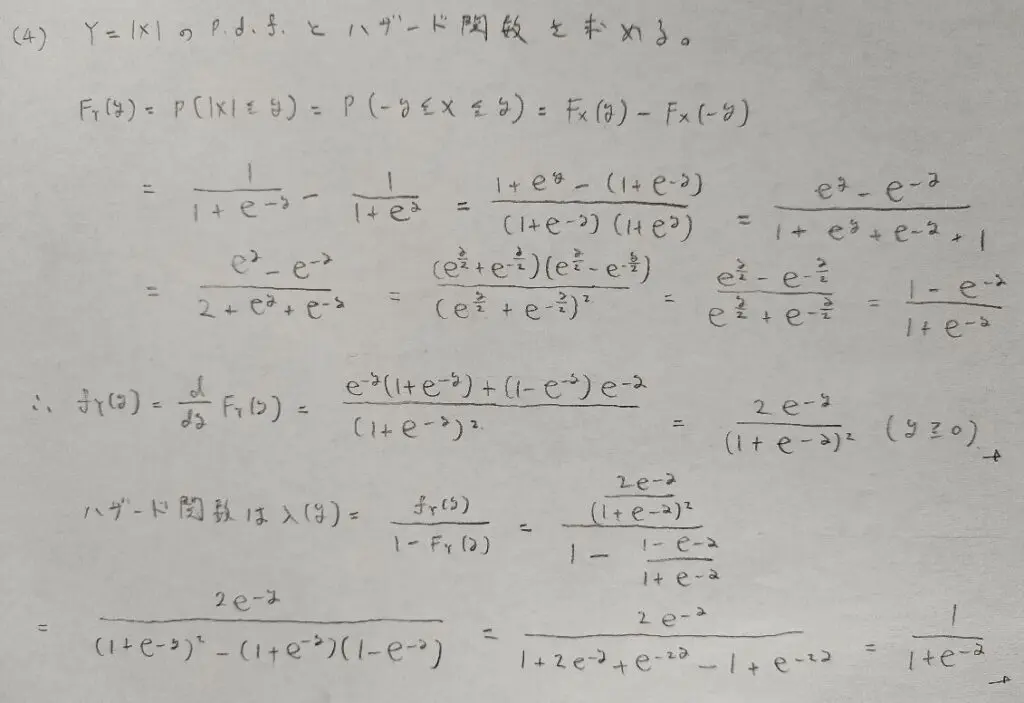 (4) Y = |X| の p.d.f. と ハザード関数 を求める。
F_Y(y) = P(|X| ≤ y) = P(-y ≤ X ≤ y) = F_X(y) - F_X(-y)
= \frac{1}{1+e^{-y}} - \frac{1}{1+e^{y}} = \frac{1+e^{y}-(1+e^{-y})}{(1+e^{-y})(1+e^{y})} = \frac{e^{y}-e^{-y}}{1+e^{y}+e^{-y}+1}
= \frac{e^{y}-e^{-y}}{2+e^{y}+e^{-y}} = \frac{(e^{\frac{y}{2}}+e^{-\frac{y}{2}})(e^{\frac{y}{2}}-e^{-\frac{y}{2}})}{(e^{\frac{y}{2}}+e^{-\frac{y}{2}})^2} = \frac{e^{\frac{y}{2}}-e^{-\frac{y}{2}}}{e^{\frac{y}{2}}+e^{-\frac{y}{2}}} = \frac{1-e^{-y}}{1+e^{-y}}
∴ f_Y(y) = \frac{d}{dy} F_Y(y) = \frac{e^{-y}(1+e^{-y})+(1-e^{-y})e^{-y}}{(1+e^{-y})^2} = \frac{2e^{-y}}{(1+e^{-y})^2} (y ≥ 0)
ハザード関数は λ(y) = \frac{f_Y(y)}{1-F_Y(y)} = \frac{\frac{2e^{-y}}{(1+e^{-y})^2}}{1-\frac{1-e^{-y}}{1+e^{-y}}}
= \frac{2e^{-y}}{(1+e^{-y})^2-(1+e^{-y})(1-e^{-y})} = \frac{2e^{-y}}{1+2e^{-y}+e^{-2y}-1+e^{-2y}} = \frac{1}{1+e^{-y}}